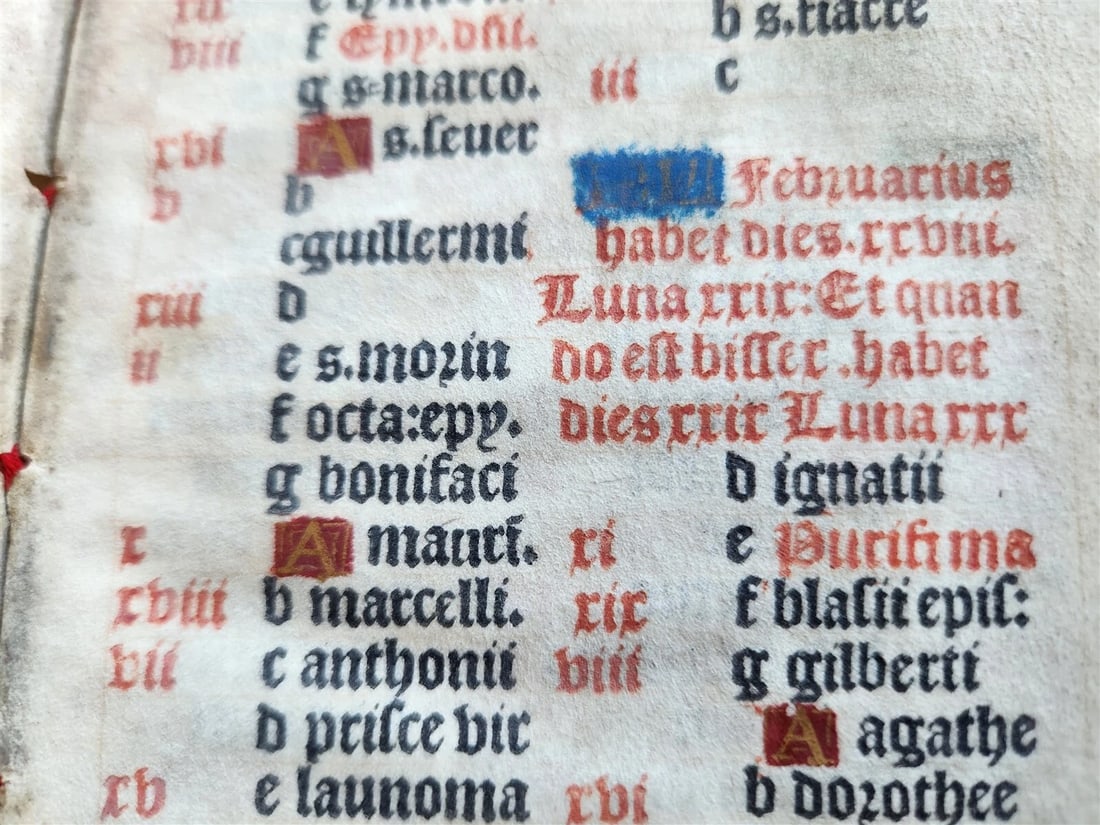 f Epy.dñi.
viii
g s=marco.
xvi A s.seuer
v b
cguillermi
xiii d
ii e s.morin
f octa:epy.
g bonifaci
x A mauri.
xviii b marcelli.
vii c anthonii
d prisce vir
xv e launoma
b s.fiacre
iii c
Februarius
habet dies.xxviii.
Luna xxix:Et quan
do est bissex .habet
dies xxix Luna xxx
d ignatii
xi e Purifi ma
xix f blasii epis:
viii g gilberti
A agathe
xvi b dorothee